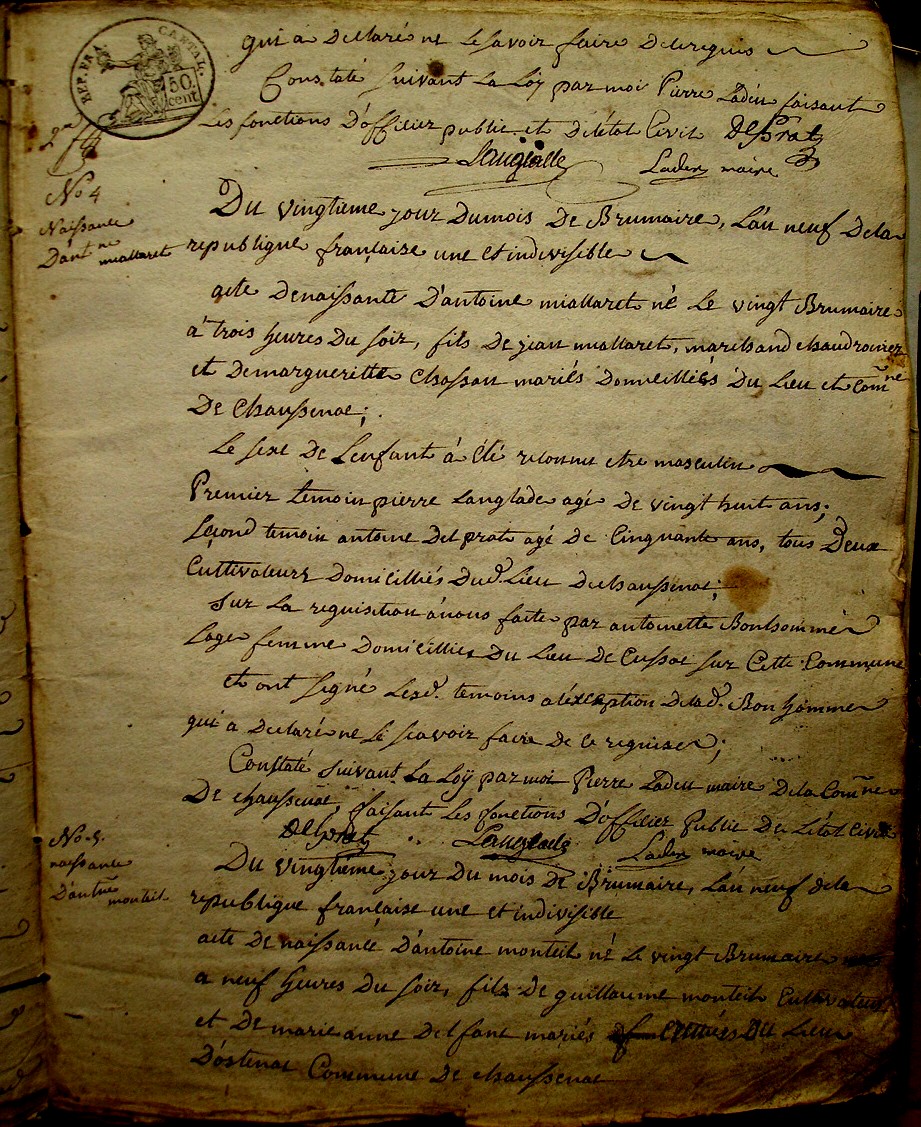 REP. FRA CANTAL.
50 cent
qui a declaré ne le savoir faire de ce requis
Constaté suivant la Loÿ par moi Pierre Ladeu faisant
Les fonctions D'officier public et D'élétat Civil Delprat
Langlade Ladeu maire
No 4
Naissance
D'ant.ne miallaret
Du vingtieme jour Dumois De Brumaire, L'an neuf Dela
republique française une et indivisible
acte Denaissante D'antoine miallaret né Le vingt Brumaire
à trois heures Du soir, fils De jean miallaret, marchand chaudronier
et Demargueritte Chassan mariés Domicilliés Du Lieu et Com.ne
De Chaussenac;
Le sexe de L'enfant à été reconnu etre masculin
Premier temoin pierre Langlade agé De vingt huit ans;
second temoin antoine Delprat agé de Cinquante ans, tous Deux
Cultivateurs Domicilliés Dud. Lieu Dechaussenac;
Sur La requisition ànous faite par antoinette Bonhomme
sage femme Domicilliée Du Lieu De Cussac sur Cette Commune
et ont signé Lesd. temoins aléxception Delad. Bonhomme
qui a Declaré ne Le scavoir faire de ce requise;
Constaté suivant La Loÿ par moi Pierre Ladeu maire Dela Com.ne
De chaussenac, faisant Les fonctions D'officier Public De L'état Civil
Delprat Langlade Ladeu maire
No 5.
naissance
D'ant.ne monteil
Du vingtieme jour Du mois De Brumaire, L'an neuf dela
republique française une et indivisible
acte De naissance D'antoine monteil né Le vingt Brumaire
a neuf heures Du soir, fils De guillaume monteil Cultivateur
et De marie anne Delfant mariés Du Lieu
D'ostenac Commune De chaussenac